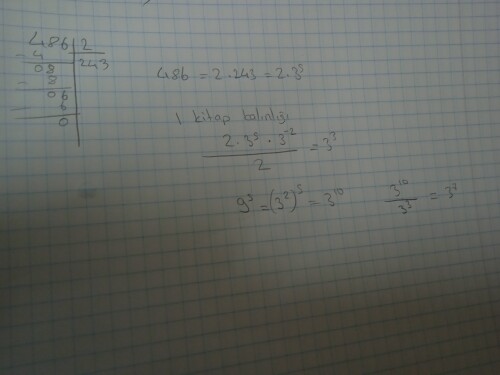 486 | 2
- 4 | 243
08
- 8
06
- 6
0
486 = 2.243 = 2.3⁵
1 kitap kalınlığı
2.3⁵.3⁻² / 2 = 3³
9⁵ = (3²)⁵ = 3¹⁰
3¹⁰ / 3³ = 3⁷